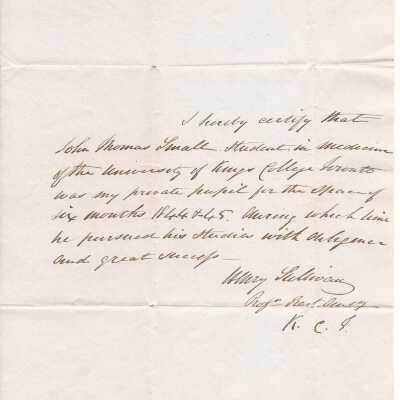 I hereby certify that
John Thomas Small Student in medicine
of the University of Kings College Toronto
was my private pupil for the space of
six months 1844 & 45. during which time
he pursued his studies with diligence
and great success —
Henry Sullivan
Profr Pract. Anaty
K. C. T.